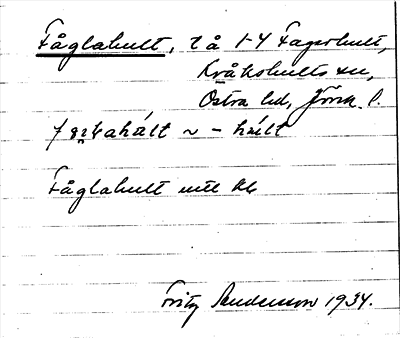 Fåglahult, t å 1-4 Fagerhult,
Kråkshults sn,
Östra hd, Jönk. l.
~ - hult
Fåglahult
Fritz Sandersson 1934.